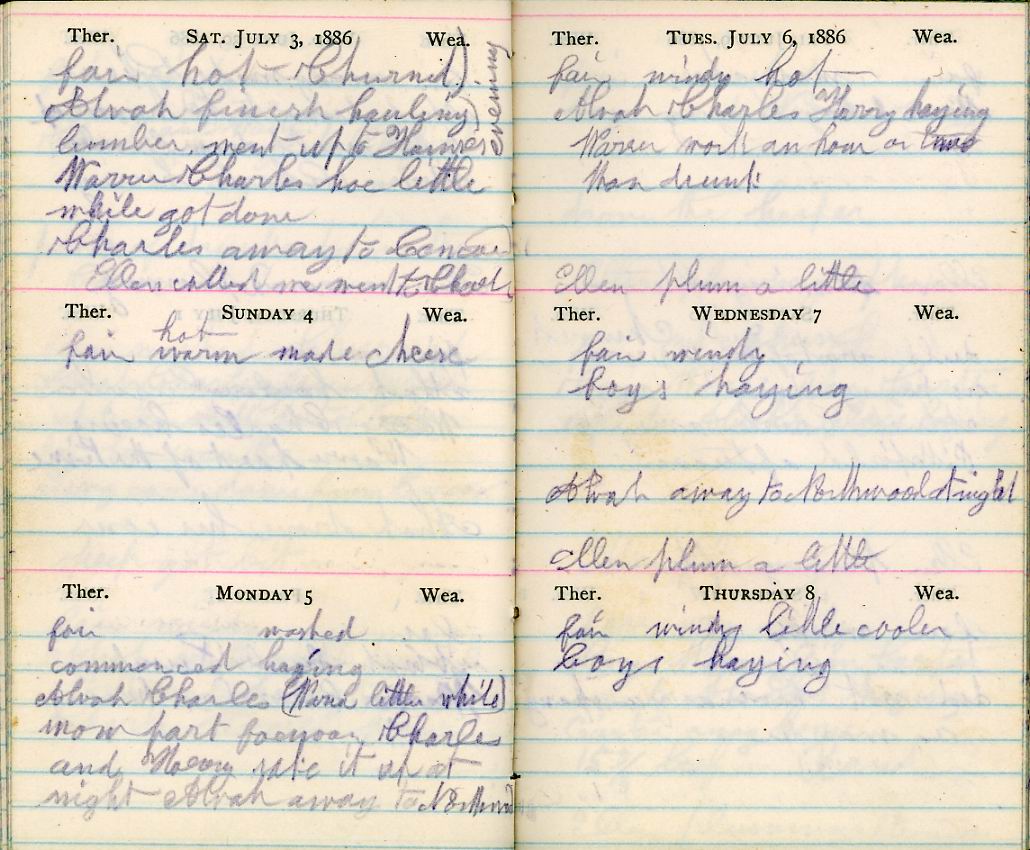 Ther. SAT. JULY 3, 1886 Wea.
fair hot Churned)
Alvah finish hauling) evening
lumber. went up to
Warren Charles hoe little
while got done
Charles away to
Ellen called we went to
Ther. SUNDAY 4 Wea.
hot
fair warm made cheese
Ther. MONDAY 5 Wea.
fair washed
commenced haying
Alvah Charles ( little while)
mow part Charles
and Harry it up at
night Alvah away to
Ther. TUES. JULY 6, 1886 Wea.
fair windy hot
Alvah Charles Harry haying
Warren work an hour or two
drunk
Ellen plum a little
Ther. WEDNESDAY 7 Wea.
fair windy
boys haying
Alvah away to Northwood at night
Ellen plum a little
Ther. THURSDAY 8 Wea.
fair windy little cooler
boys haying